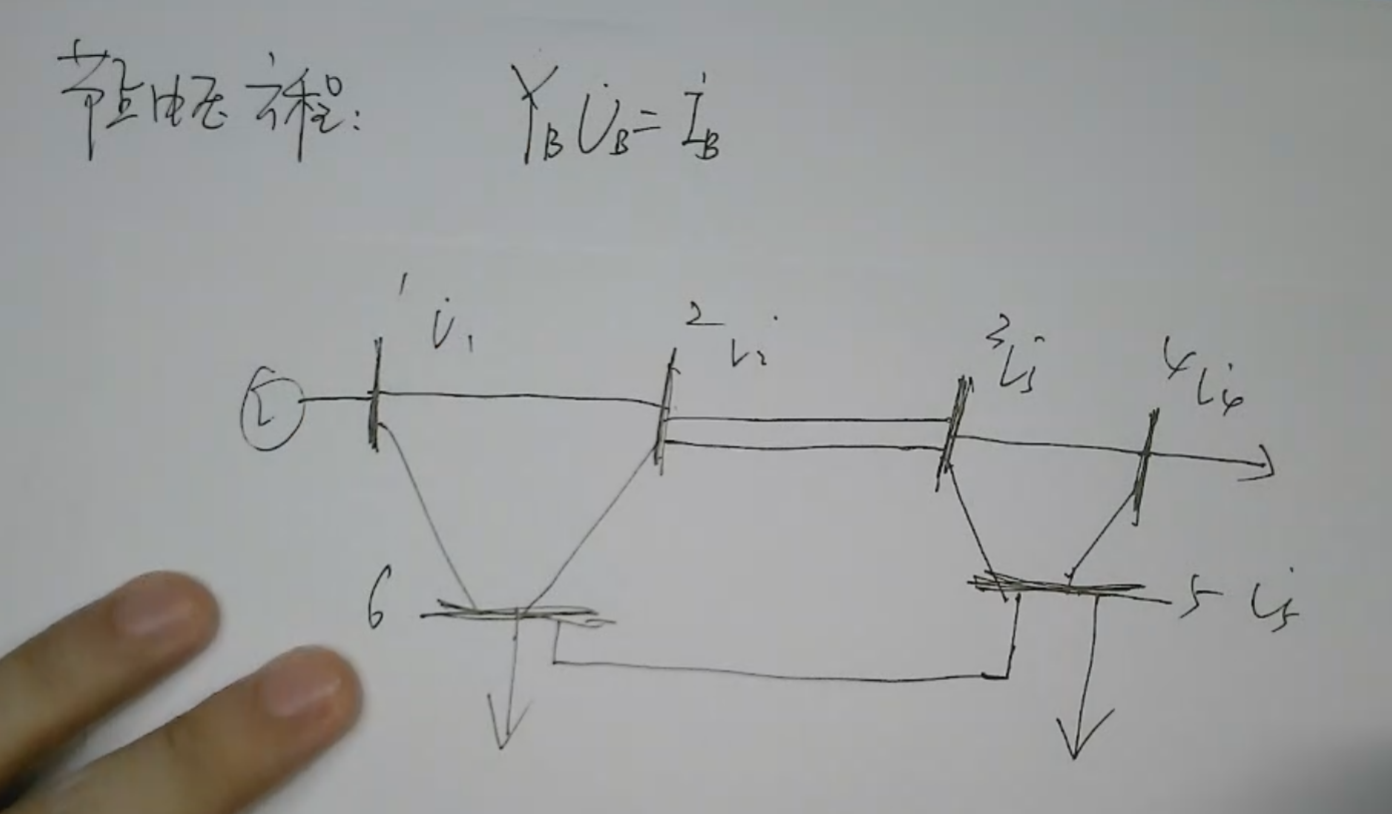 节点电压方程: Y_B U̇_B = İ_B
1 U̇₁
2 U̇₂
3 U̇₃
4 U̇₄
6
5 U̇₅